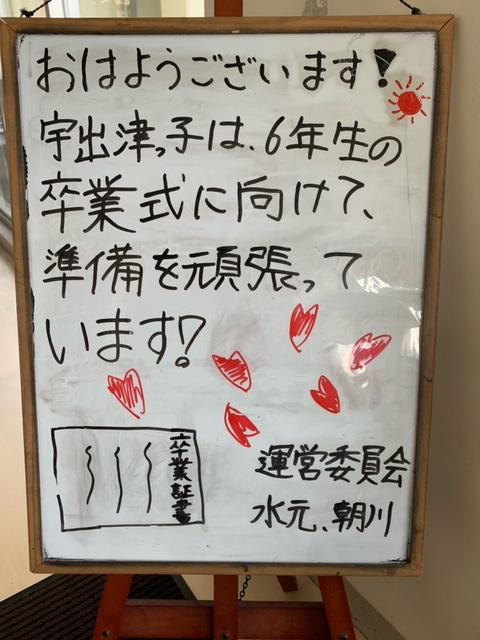 おはようございます!
宇出津っ子は、6年生の
卒業式に向けて、
準備を頑張って
います!?
卒業証書
運営委員会
水元、朝川